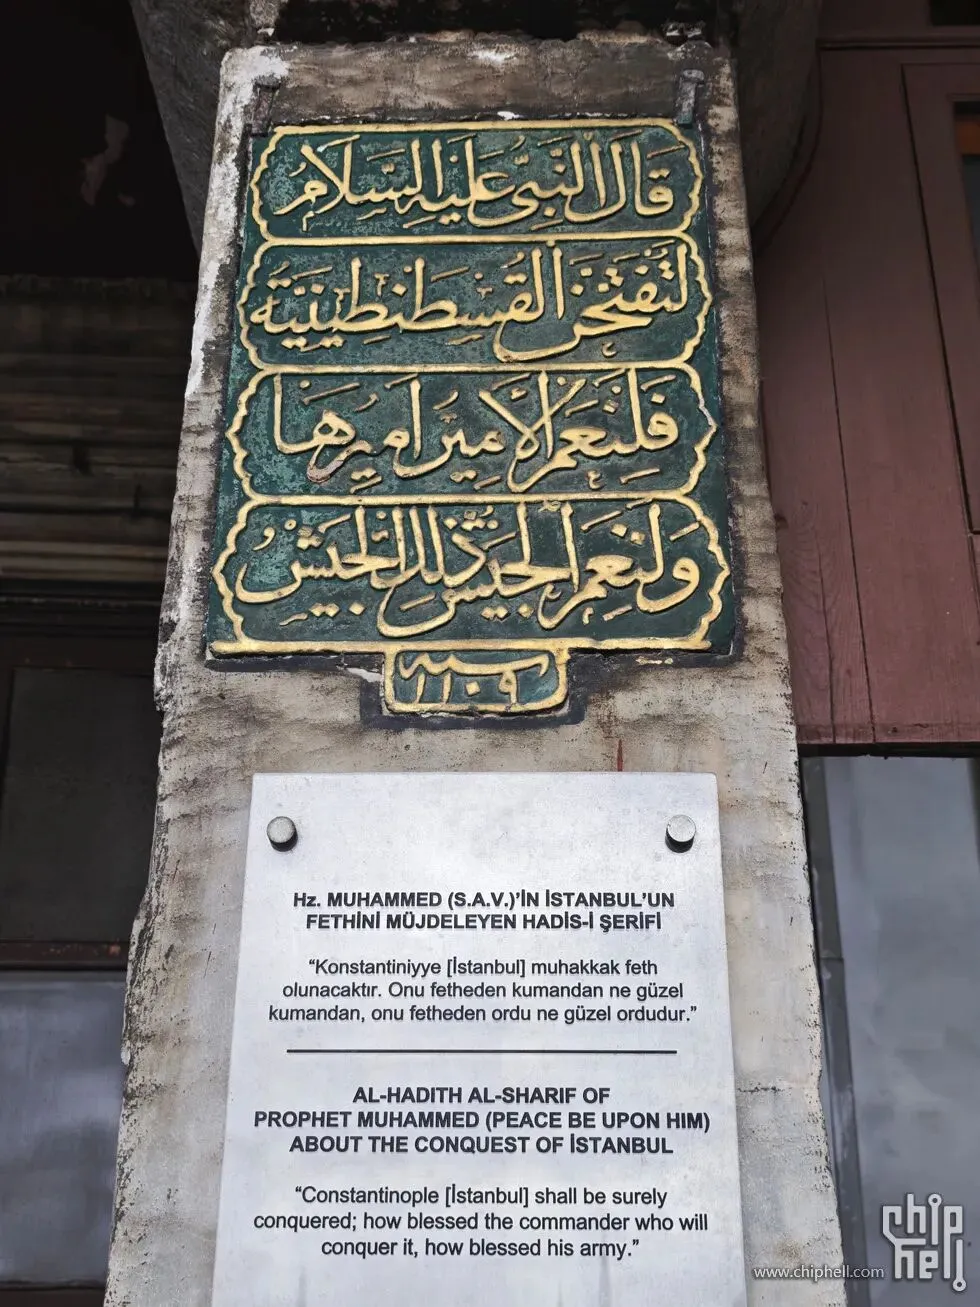 قَالَ النَّبِىُّ عَلَيْهِ السَّلَامُ
لَتُفْتَحَنَّ الْقُسْطَنْطِينِيَّةُ
فَلَنِعْمَ الْاَمِيرُ اَمِيرُهَا
وَلَنِعْمَ الْجَيْشُ ذٰلِكَ الْجَيْشُ
سنه
١١٠٩
Hz. MUHAMMED (S.A.V.)’İN İSTANBUL’UN
FETHİNİ MÜJDELEYEN HADİS-İ ŞERİFİ
“Konstantiniyye [İstanbul] muhakkak feth
olunacaktır. Onu fetheden kumandan ne güzel
kumandan, onu fetheden ordu ne güzel ordudur.”
AL-HADITH AL-SHARIF OF
PROPHET MUHAMMED (PEACE BE UPON HIM)
ABOUT THE CONQUEST OF İSTANBUL
“Constantinople [İstanbul] shall be surely
conquered; how blessed the commander who will
conquer it, how blessed his army.”
www.chiphell.com
chip
hell